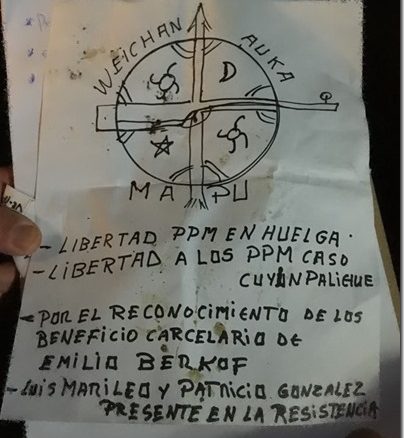 WEICHAN AUKA
D
MAPU
- LIBERTAD PPM EN HUELGA.
- LIBERTAD A LOS PPM CASO
CUYINPALIHUE
- POR EL RECONOCIMIENTO DE LOS
BENEFICIO CARCELARIO DE
EMILIO BERKOF
- LUIS MARILEO Y PATRICIO GONZALEZ
PRESENTE EN LA RESISTENCIA